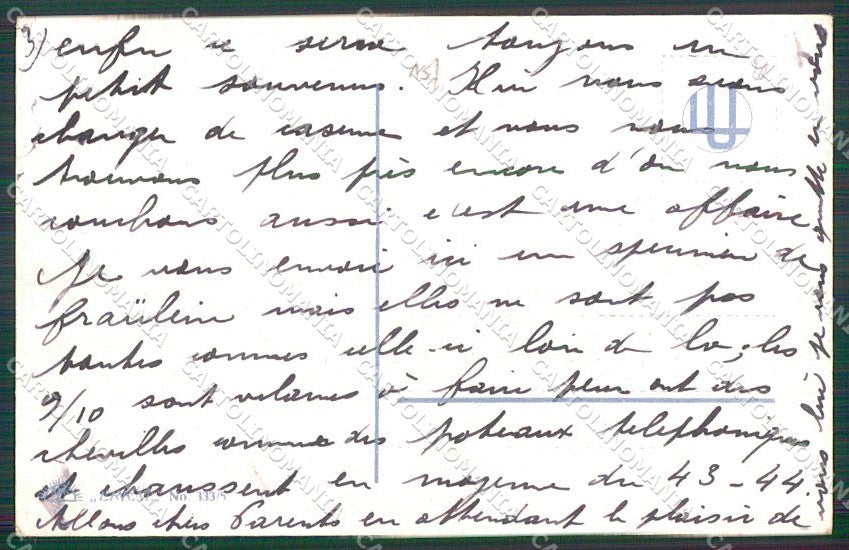 3) enfin ce sera toujours un
petit souvenir. Hier nous avons
changer de caserne et nous nous
trouvons plus près encore d'où nous
couchons aussi c'est une affaire
Je vous envoie ici un specimen de
fraülein mais elles ne sont pas
toutes commes celle-ci loin de la; les
9/10 sont vilaines à faire peur ont des
chevilles comme des poteaux telephoniques
et chaussent en moyenne du 43-44.
Allons chers Parents en attendant le plaisir de
vous lire je vous quitte en vous
No. 333/5
N5
CARTOLINOMANIA